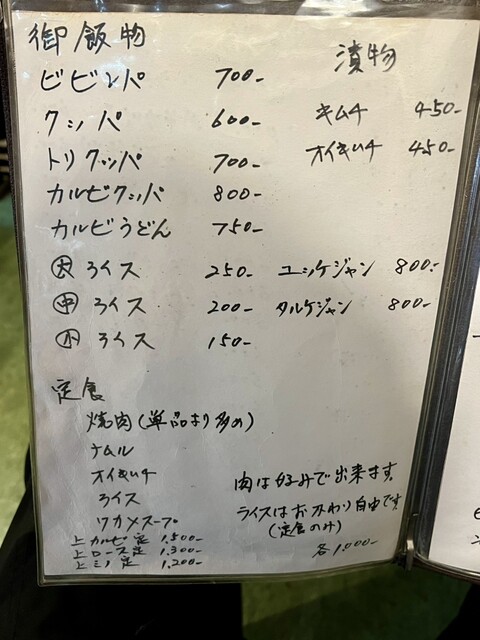 御飯物
ビビンパ 700-
クッパ 600-
トリクッパ 700-
カルビクッパ 800-
カルビうどん 750-
㊛ライス 250-
㊥ライス 200-
㊙ライス 150-
漬物
キムチ 450-
オイキムチ 450-
ユッケジャン 800-
タルケジャン 800-
定食
焼肉(単品より多め)
ナムル
オイキムチ
ライス
ワカメスープ
上カルビ定 1,500-
上ロース定 1,300-
上ミノ定 1,200-
肉は好みで出来ます。
ライスはおかわり自由です。
(定食のみ)
各1,000-